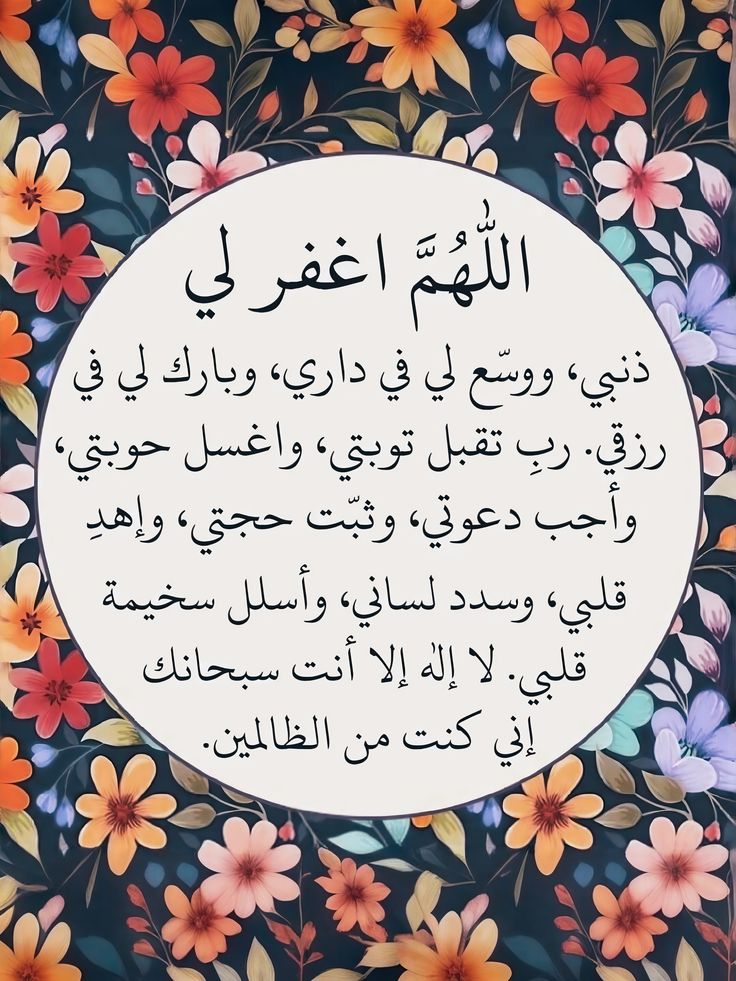 اللّٰهُمَّ اغفر لي
ذنبي، ووسّع لي في داري، وبارك لي في
رزقي. ربِ تقبل توبتي، واغسل حوبتي،
وأجب دعوتي، وثبّت حجتي، وإهدِ
قلبي، وسدد لساني، وأسلل سخيمة
قلبي. لا إلٰه إلا أنت سبحانك
إني كنت من الظالمين.